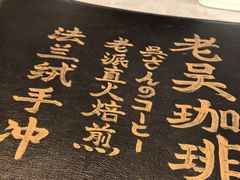 老吴珈琲
呉さんのコーヒー
老派直火焙煎
法兰绒手冲